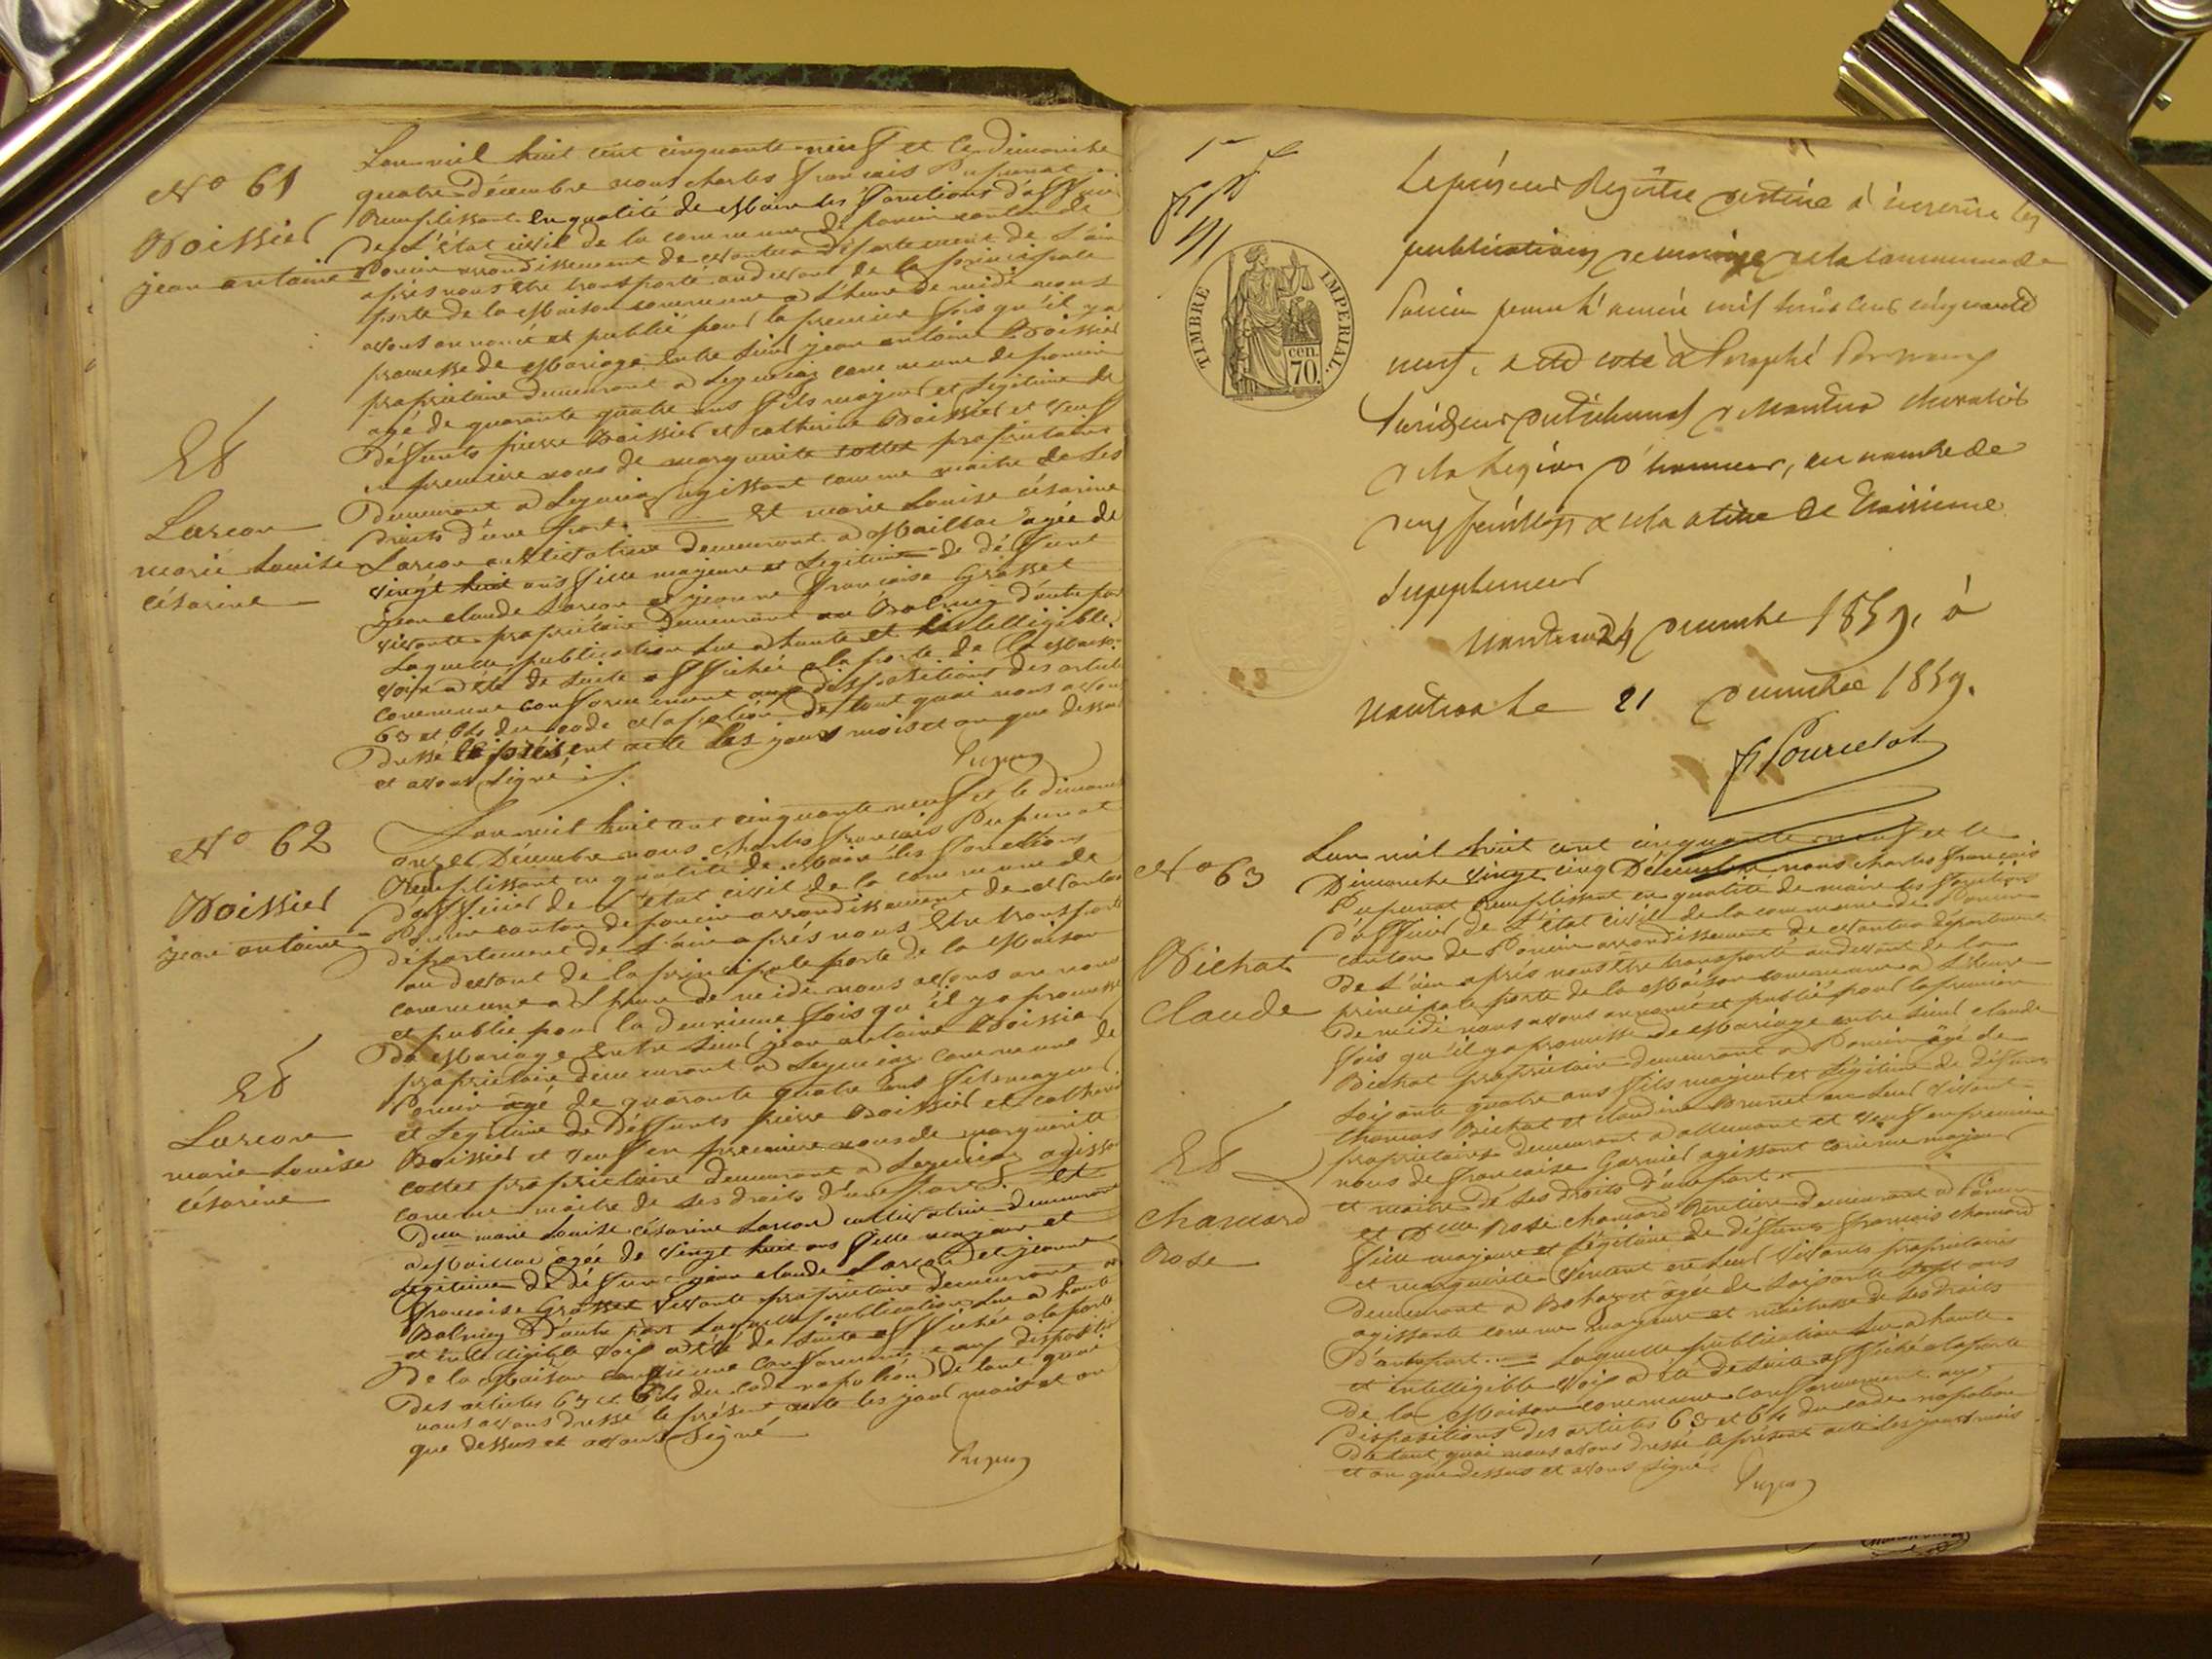 N° 61
Boissier
jean antoine
Et
Larcon
marie Louise
césarine
L'an mil huit cent cinquante neuf et le dimanche
quatre Décembre nous charles français Pupunat
Remplissant en qualité de Maire les fonctions d'officier
De L'état civil de la commune de poncin canton de
Poncin arrondissement de nantua département de L'ain
après nous être transporté au devant de la principale
porte de la Maison commune a L'heure de midi nous
avons annoncé et publié pour la premiere fois qu'il y a
promesse de Mariage entre Sieur jean antoine Boissier
propriétaire demeurant a Leymiaz commune de poncin
agé de quarante quatre ans fils majeur et Legitime de
Deffunts pierre Boissier et catherine Boissier et veuf
en premiere nous de marguerite cottet propriétaire
Demeurant a Leymiaz agissant comme maitre de ses
Droits d'une part. Et marie Louise césarine
Larcon cultivatrice demeurant a Maillac agée de
vingt huit ans fille majeure et Legitime de déffunt
jean claude Larcon et jeanne françoise Grosset
vivante propriétaire demeurant au Balmey d'autre part
Laquelle publication Lue a haute et intelligible
voix a été de suite affichée a la porte de la Maison
commune conformement aux dispositions des articles
63 et 64 du code napoléon De tout quoi nous avons
Dressé le présent acte les jour mois et an que dessus
et avons Signé
N° 62
Boissier
jean antoine
Et
Larcon
marie Louise
césarine
L'an mil huit cent cinquante neuf et le dimanche
onze Décembre nous charles français Pupunat
Remplissant en qualité de Maire les fonctions
d'officier de L'état civil de la commune de
Poncin canton de poncin arrondissement de nantua
département de L'ain après nous être transporté
au devant de la principale porte de la Maison
commune a L'heure de midi nous avons annoncé
et publié pour la deuxieme fois qu'il y a promesse
De Mariage Entre Sieur jean antoine Boissier
propriétaire demeurant a Leymiaz commune de
Poncin agé de quarante quatre ans fils majeur
et Legitime de Déffunts pierre Boissier et catherine
Boissier et veuf en premiere nous de marguerite
cottet propriétaire demeurant a Leymiaz agissant
comme maitre de ses droits d'une part. Et
Delle marie Louise césarine Larcon cultivatrice demeurant
a Maillac agée de vingt huit ans fille majeure et
Legitime de Déffunt jean claude Larcon et jeanne
françoise Grosset vivante propriétaire demeurant au
Balmey D'autre part Laquelle publication Lue a haute
et intelligible voix a été de suite affichée a la porte
De la Maison commune conformement aux dispositions
Des articles 63 et 64 du code napoléon De tout quoi
nous avons dressé le présent acte les jour mois et an
que dessus et avons Signé
TIMBRE IMPERIAL.
cen. 70.
Le présent Registre destiné à inscrire les
publications de mariage de la commune de
Poncin pour l'année mil huit cent cinquante
neuf, a été coté & Paraphé Par nous
Président du Tribunal de Nantua chevalier
de la Légion d'honneur, au nombre de
feuillets & cela a titre de troisieme
Supplément
Nantua 24 decembre 1859, à
Nantua le 21 decembre 1859.
N° 63
Bichat
Claude
Et
Chamard
Rose
L'an mil huit cent cinquante neuf et le
Dimanche vingt cinq Décembre nous charles français
Pupunat Remplissant en qualité de maire les fonctions
d'officier de L'état civil de la commune de Poncin
canton de Poncin arrondissement de nantua département
De L'ain après nous être transporté au devant de la
principale porte de la Maison commune a L'heure
De midi nous avons annoncé et publié pour la premiere
fois qu'il y a promesse de Mariage entre Sieur claude
Bichat propriétaire demeurant a Poncin agé de
soixante quatre ans fils majeur et Légitime de défunts
thomas Bichat et claudine Brunet en leur vivant
propriétaires demeurant a allement et veuf en premiere
nous de françoise Garnier agissant comme majeur
et maitre de ses droits d'une part.
et Delle Rose chamard Rentiere demeurant a Poncin
fille majeure et Légitime de défunts français chamard
et marguerite Vincent en leur vivants propriétaires
Demeurant a Bohas et agée de soixante sept ans
agissante comme majeure et maitresse de ses droits
D'autre part. Laquelle publication Lue a haute
et intelligible voix a été de suite affichée a la porte
De la Maison commune conformement aux
Dispositions des articles 63 et 64 du code napoléon
De tout quoi nous avons dressé le présent acte les jour mois
et an que dessus et avons signé